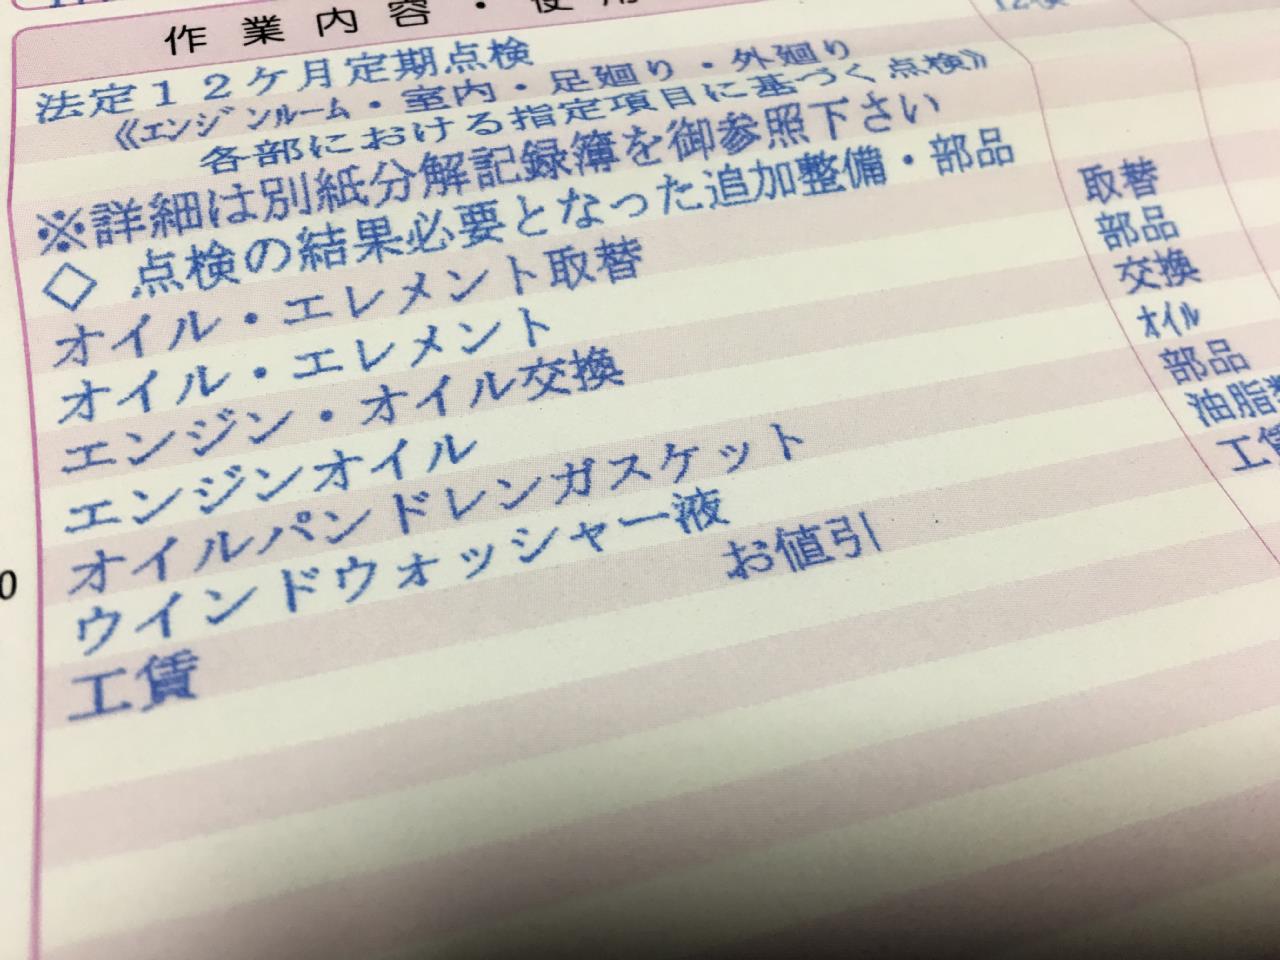 作業内容・使用
法定12ケ月定期点検
《エンジンルーム・室内・足廻り・外廻り
各部における指定項目に基づく点検》
※詳細は別紙分解記録簿を御参照下さい
◇ 点検の結果必要となった追加整備・部品
オイル・エレメント取替 取替
オイル・エレメント 部品
エンジン・オイル交換 交換
エンジンオイル オイル
オイルパンドレンガスケット 部品
ウインドウォッシャー液 油脂
工賃 お値引 工賃
0